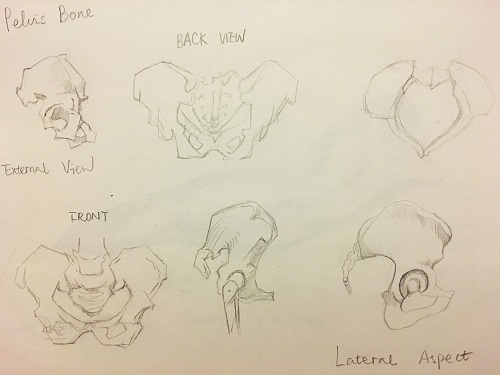 Pelvis Bone
BACK VIEW
External View
FRONT
Lateral Aspect